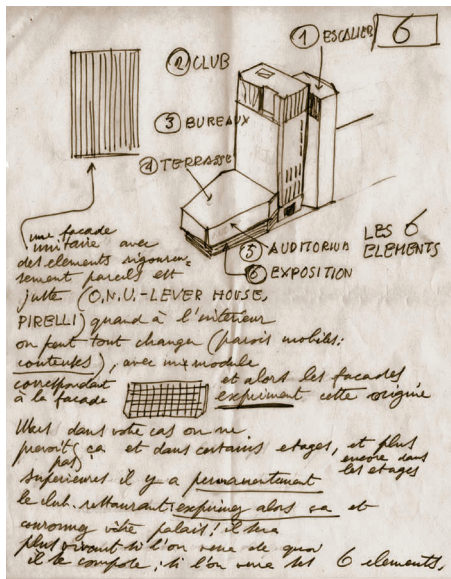 ① ESCALIER 6
② CLUB
③ BUREAUX
④ TERRASSE
⑤ AUDITORIUM
⑥ EXPOSITION
LES 6
ELEMENTS
une facade
unitaire avec
des elements rigoureu-
sement pareils est
juste (O.N.U.-LEVER HOUSE,
PIRELLI) quand à l'interieur
on peut tout changer (parois mobiles:
), avec un module
correspondant
à la facade
et alors les facades
expriment cette origine
Mais dans votre cas on ne
prevoit pas ça et dans certains etages, et plus
encore dans
les etages
superieures il y a permanentement
le club-restaurant exprimez alors ça et
couronnez vôtre palais! il sera
plus vivant si l'on vera de quoi
il se compose, si l'on vera les 6 elements.